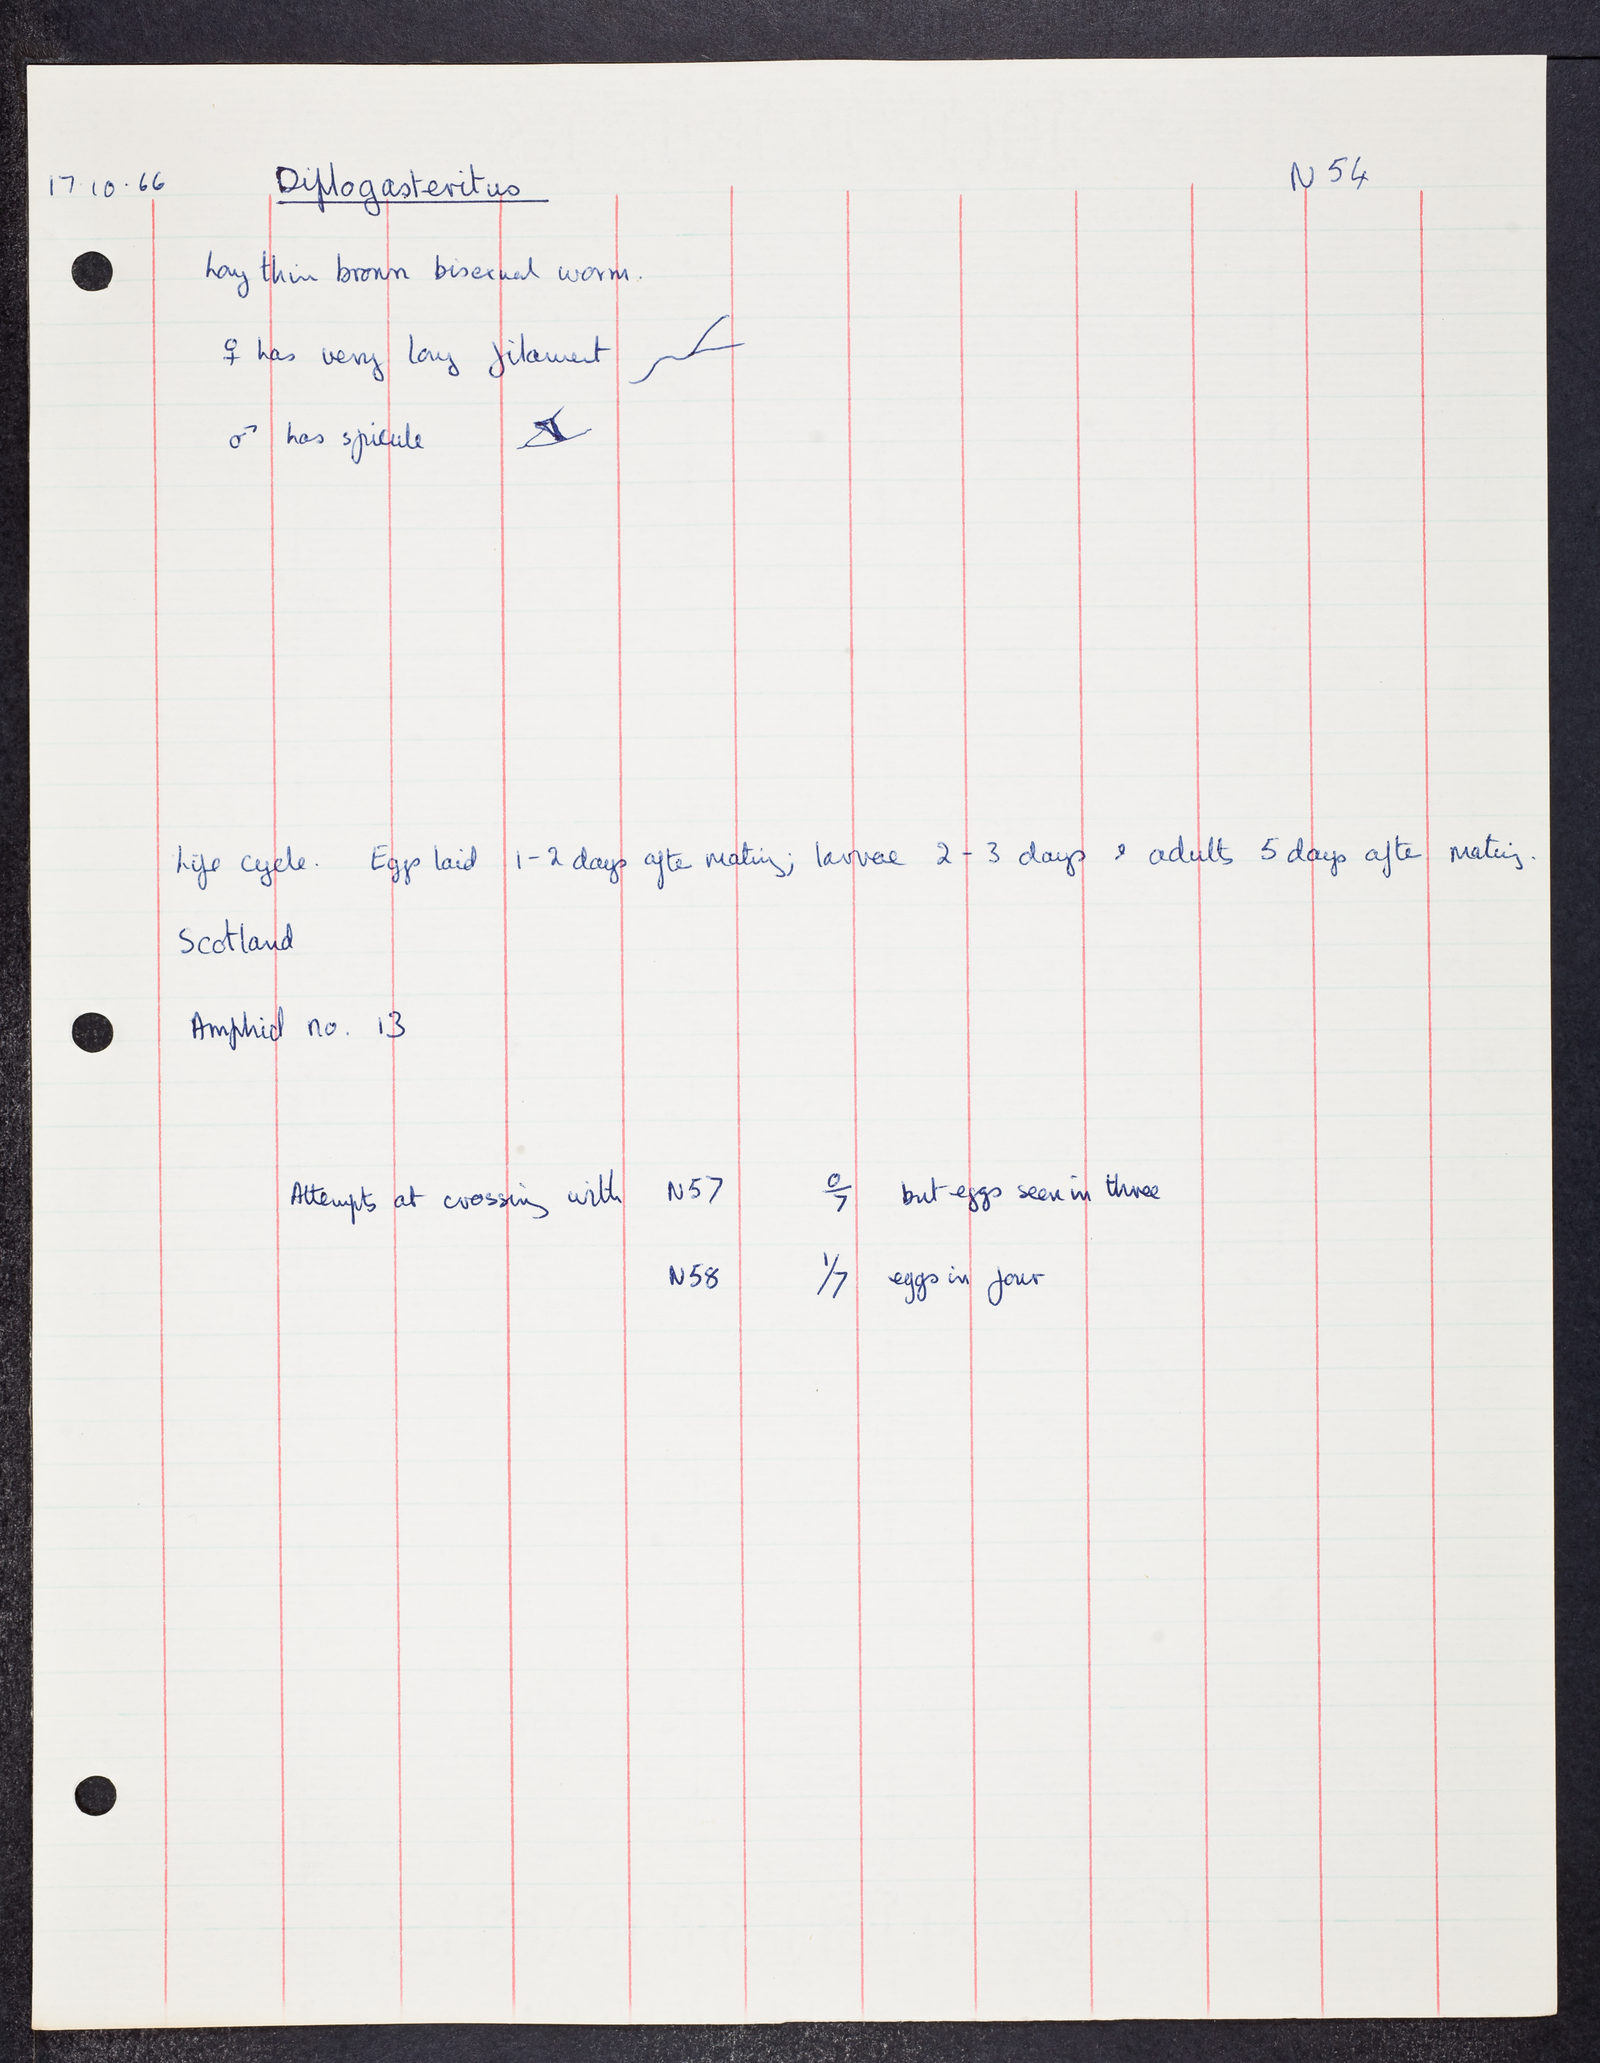 17.10.66 Diplogasteritus N54
Long thin brown bisexual worm.
♀ has very long filament
♂ has spicule
Life cycle. Eggs laid 1-2 days after mating; larvae 2-3 days & adults 5 days after mating.
Scotland
Amphid no. 13
Attempts at crossing with N57 0/7 but eggs seen in three
N58 1/7 eggs in four